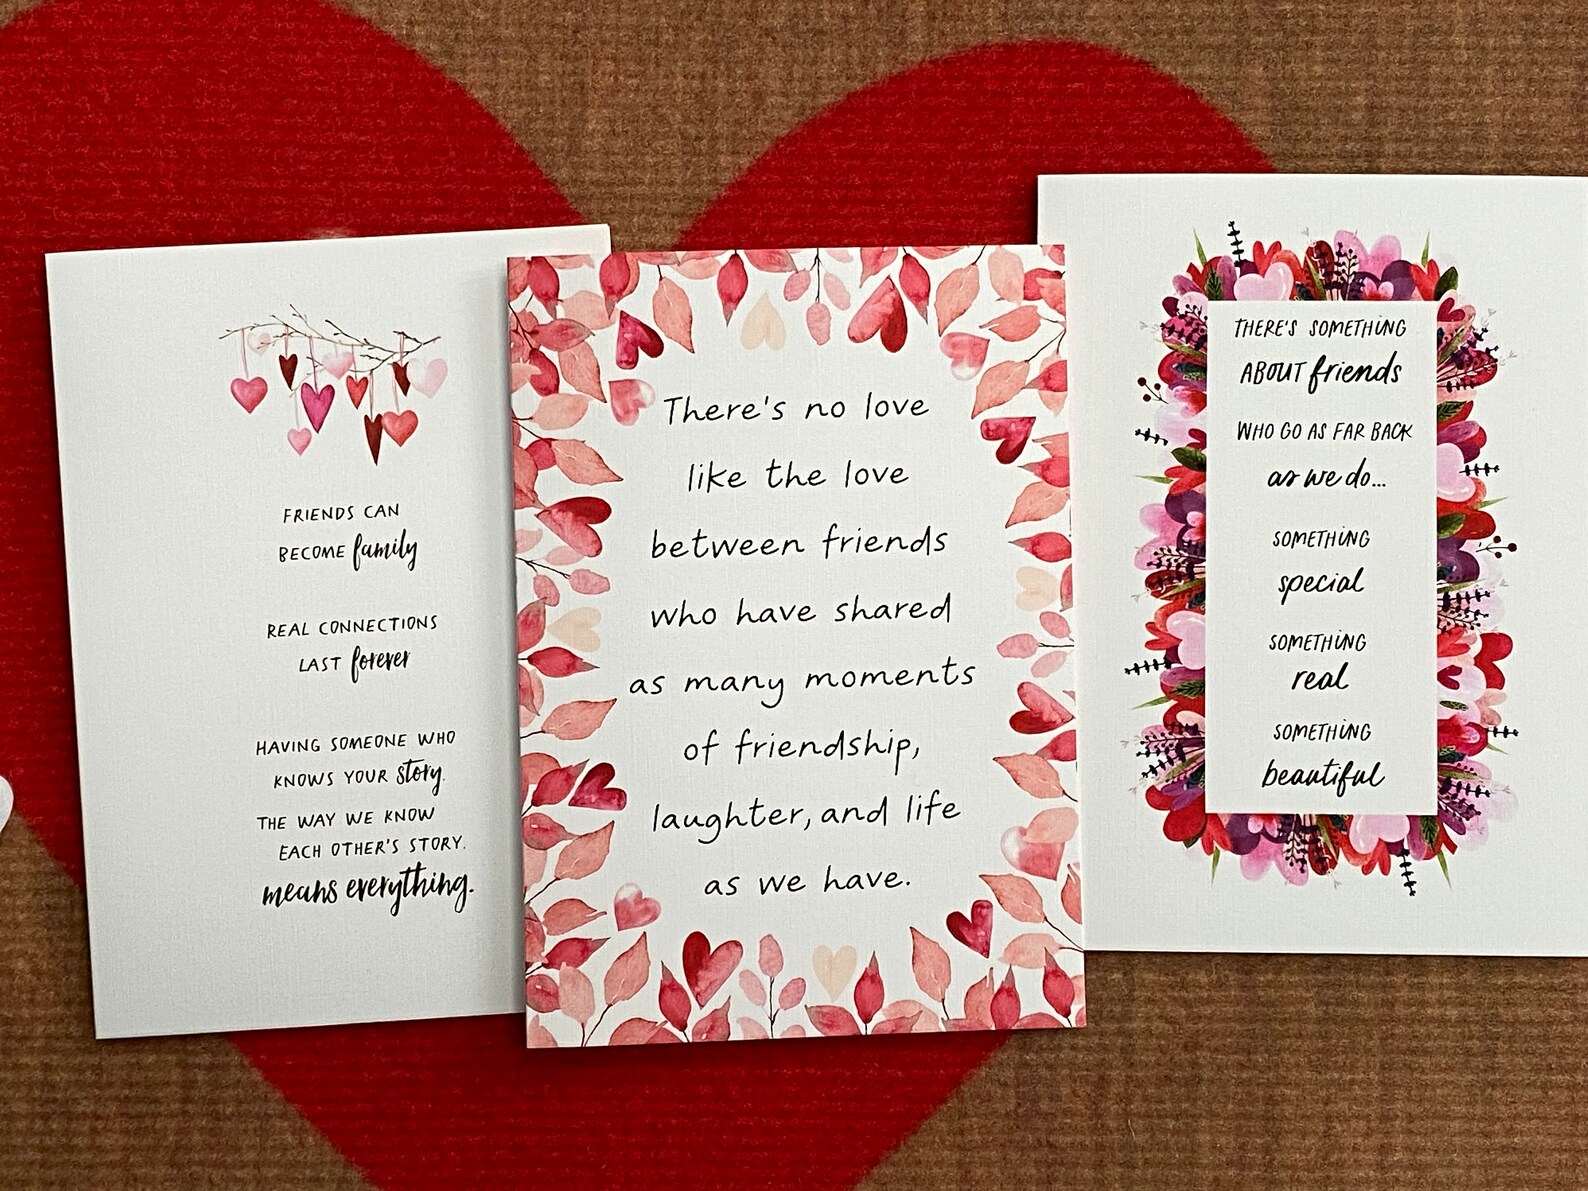 FRIENDS CAN
BECOME family
REAL CONNECTIONS
LAST forever
HAVING SOMEONE WHO
KNOWS YOUR story.
THE WAY WE KNOW
EACH OTHER'S STORY,
means everything.
There's no love
like the love
between friends
who have shared
as many moments
of friendship,
laughter, and life
as we have.
THERE'S SOMETHING
ABOUT friends
WHO GO AS FAR BACK
as we do...
SOMETHING
special
SOMETHING
real
SOMETHING
beautiful